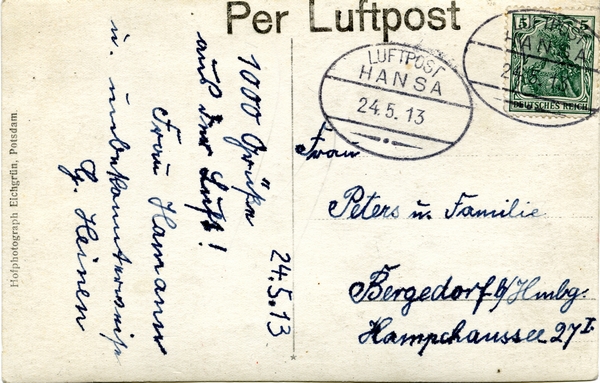 Per Luftpost
LUFTPOST
HANSA
24.5.13
LUFTPOST
HANSA
24.5.13
5 5
DEUTSCHES REICH
1000 Grüße
aus der Luft!
Frau Hamann
u. unbekannterweise
G. Heinen
24.5.13
Frau
Peters u. Familie
Bergedorf b/Hmbg.
Hampchaussee 27 I.
Hofphotograph Eichgrün, Potsdam.